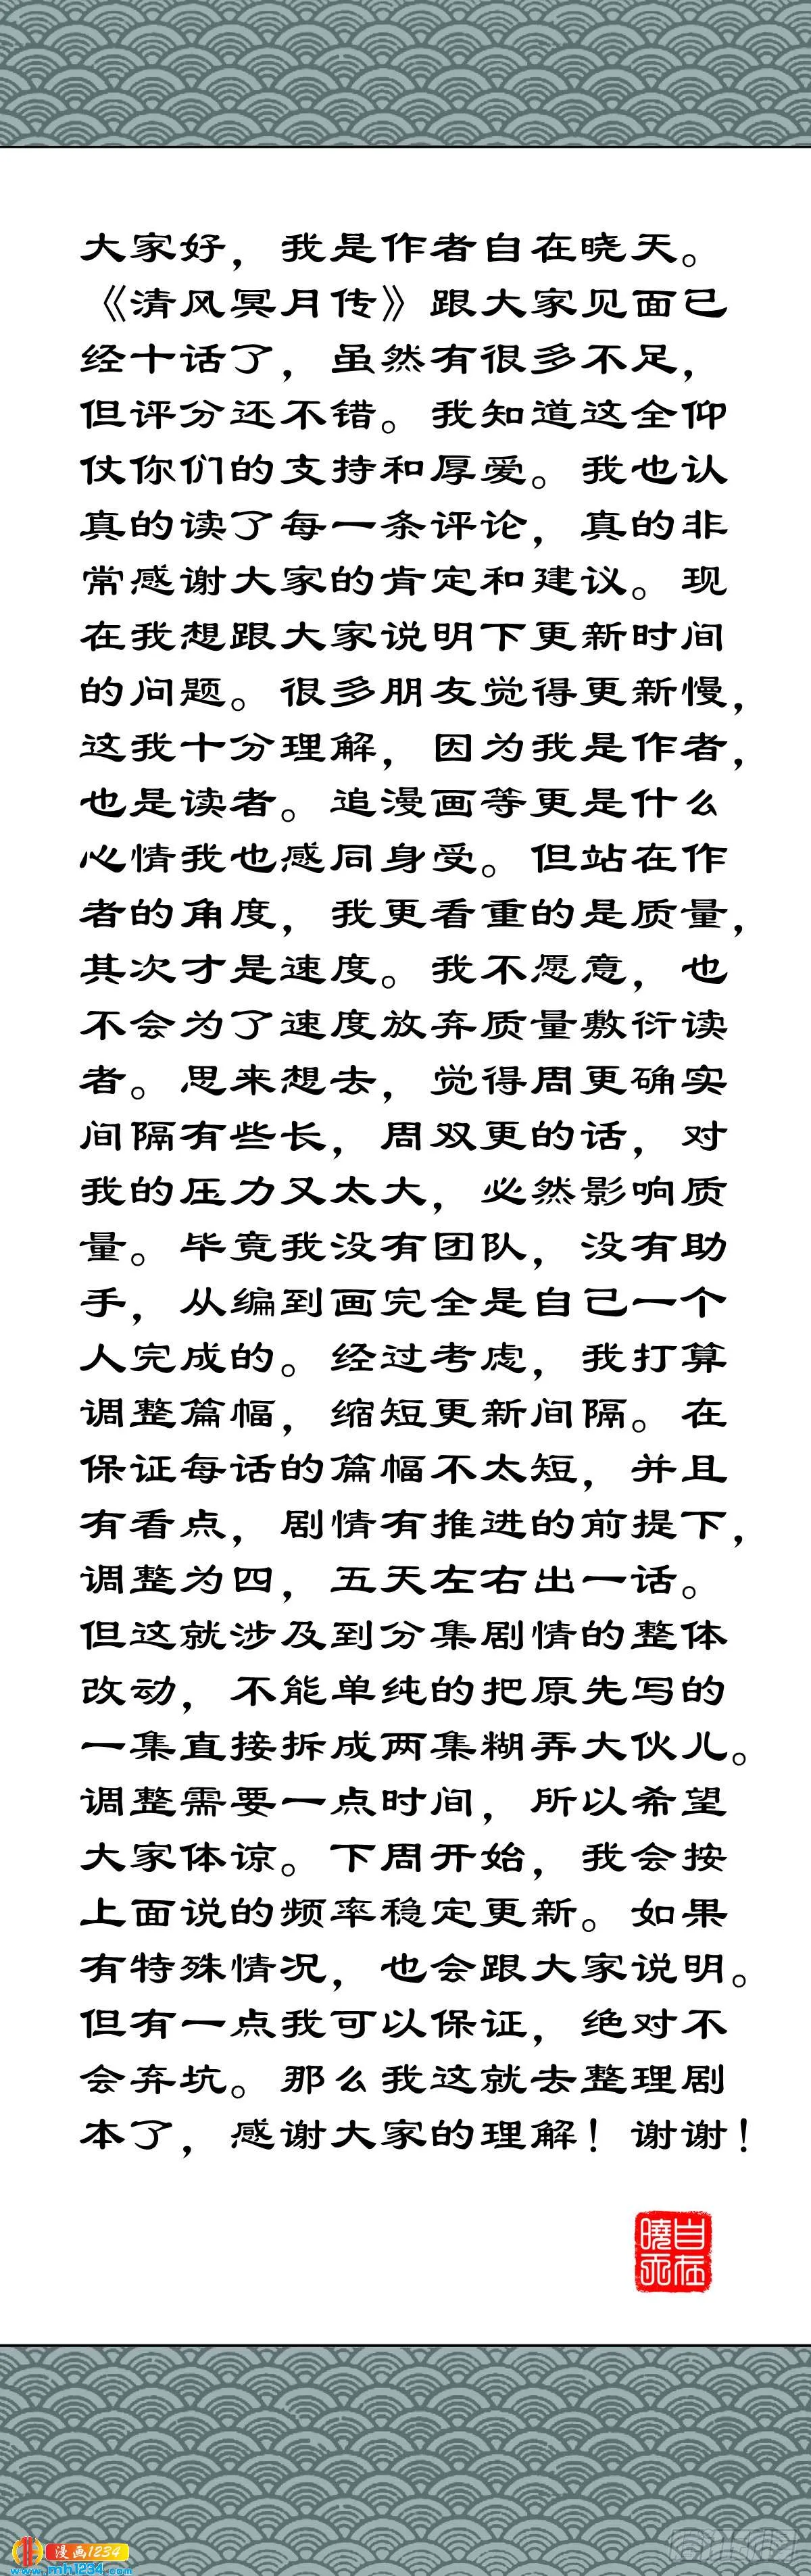 大家好，我是作者自在晓天。
《清风冥月传》跟大家见面已
经十话了，虽然有很多不足，
但评分还不错。我知道这全仰
仗你们的支持和厚爱。我也认
真的读了每一条评论，真的非
常感谢大家的肯定和建议。现
在我想跟大家说明下更新时间
的问题。很多朋友觉得更新慢，
这我十分理解，因为我是作者，
也是读者。追漫画等更是什么
心情我也感同身受。但站在作
者的角度，我更看重的是质量，
其次才是速度。我不愿意，也
不会为了速度放弃质量敷衍读
者。思来想去，觉得周更确实
间隔有些长，周双更的话，对
我的压力又太大，必然影响质
量。毕竟我没有团队，没有助
手，从编到画完全是自己一个
人完成的。经过考虑，我打算
调整篇幅，缩短更新间隔。在
保证每话的篇幅不太短，并且
有看点，剧情有推进的前提下，
调整为四，五天左右出一话。
但这就涉及到分集剧情的整体
改动，不能单纯的把原先写的
一集直接拆成两集糊弄大伙儿。
调整需要一点时间，所以希望
大家体谅。下周开始，我会按
上面说的频率稳定更新。如果
有特殊情况，也会跟大家说明。
但有一点我可以保证，绝对不
会弃坑。那么我这就去整理剧
本了，感谢大家的理解！谢谢！
自在
曉天
漫画1234
www.mh1234.com